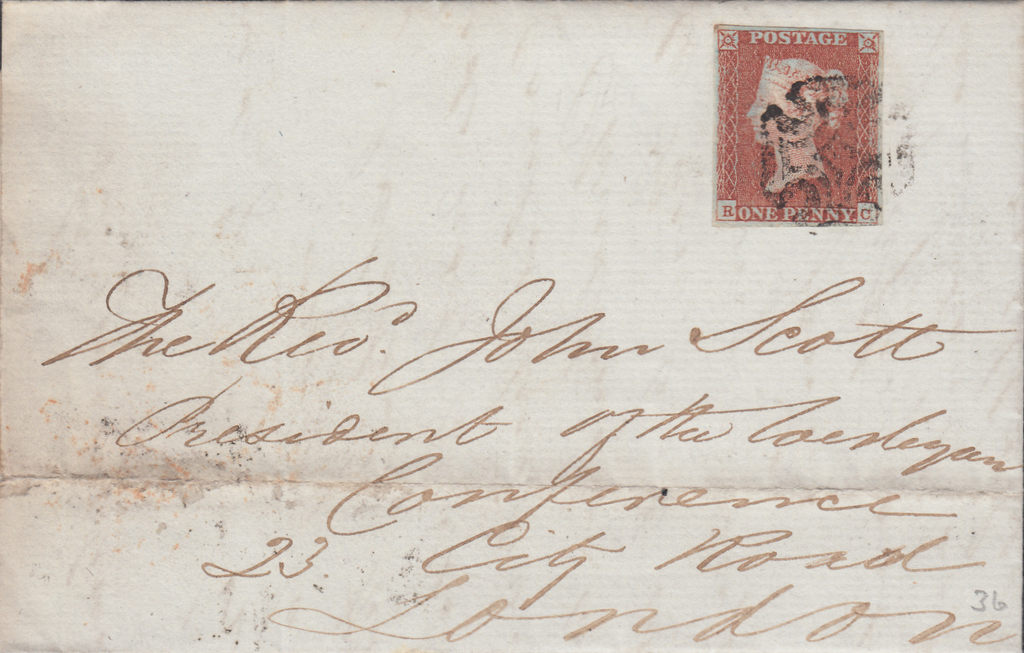 POSTAGE
R ONE PENNY. C
The Revd. John Scott
President of the Wesleyan
Conference
23 City Road
London
36